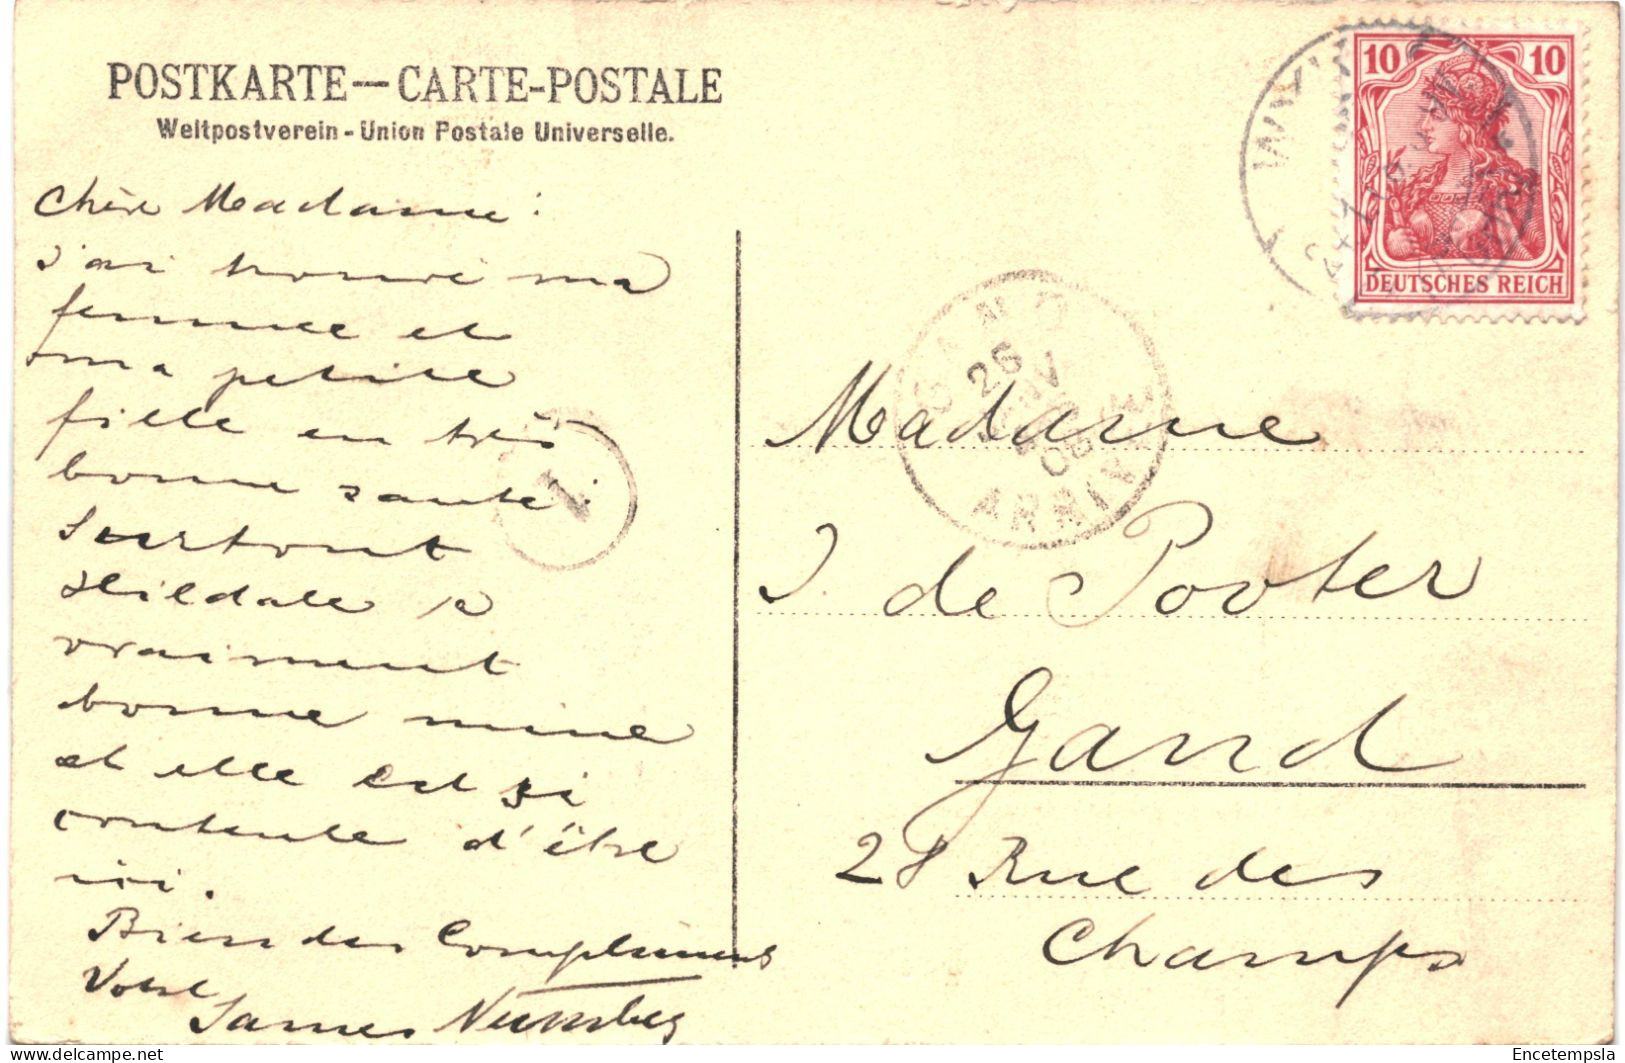 POSTKARTE — CARTE-POSTALE
Weltpostverein - Union Postale Universelle.
Chère Madame :
J'ai trouvé ma
femme et
ma petite
fille en très
bonne santé ;
surtout
a
vraiment
bonne mine
et elle est si
contente d'être
ici.
Bien des Compliments
Votre
James
10 10
DEUTSCHES REICH
GAND
26
08
ARRIV
1
Madame
J. de Pooter
Gand
28 Rue des
Champs
delcampe.net
Encetempsla